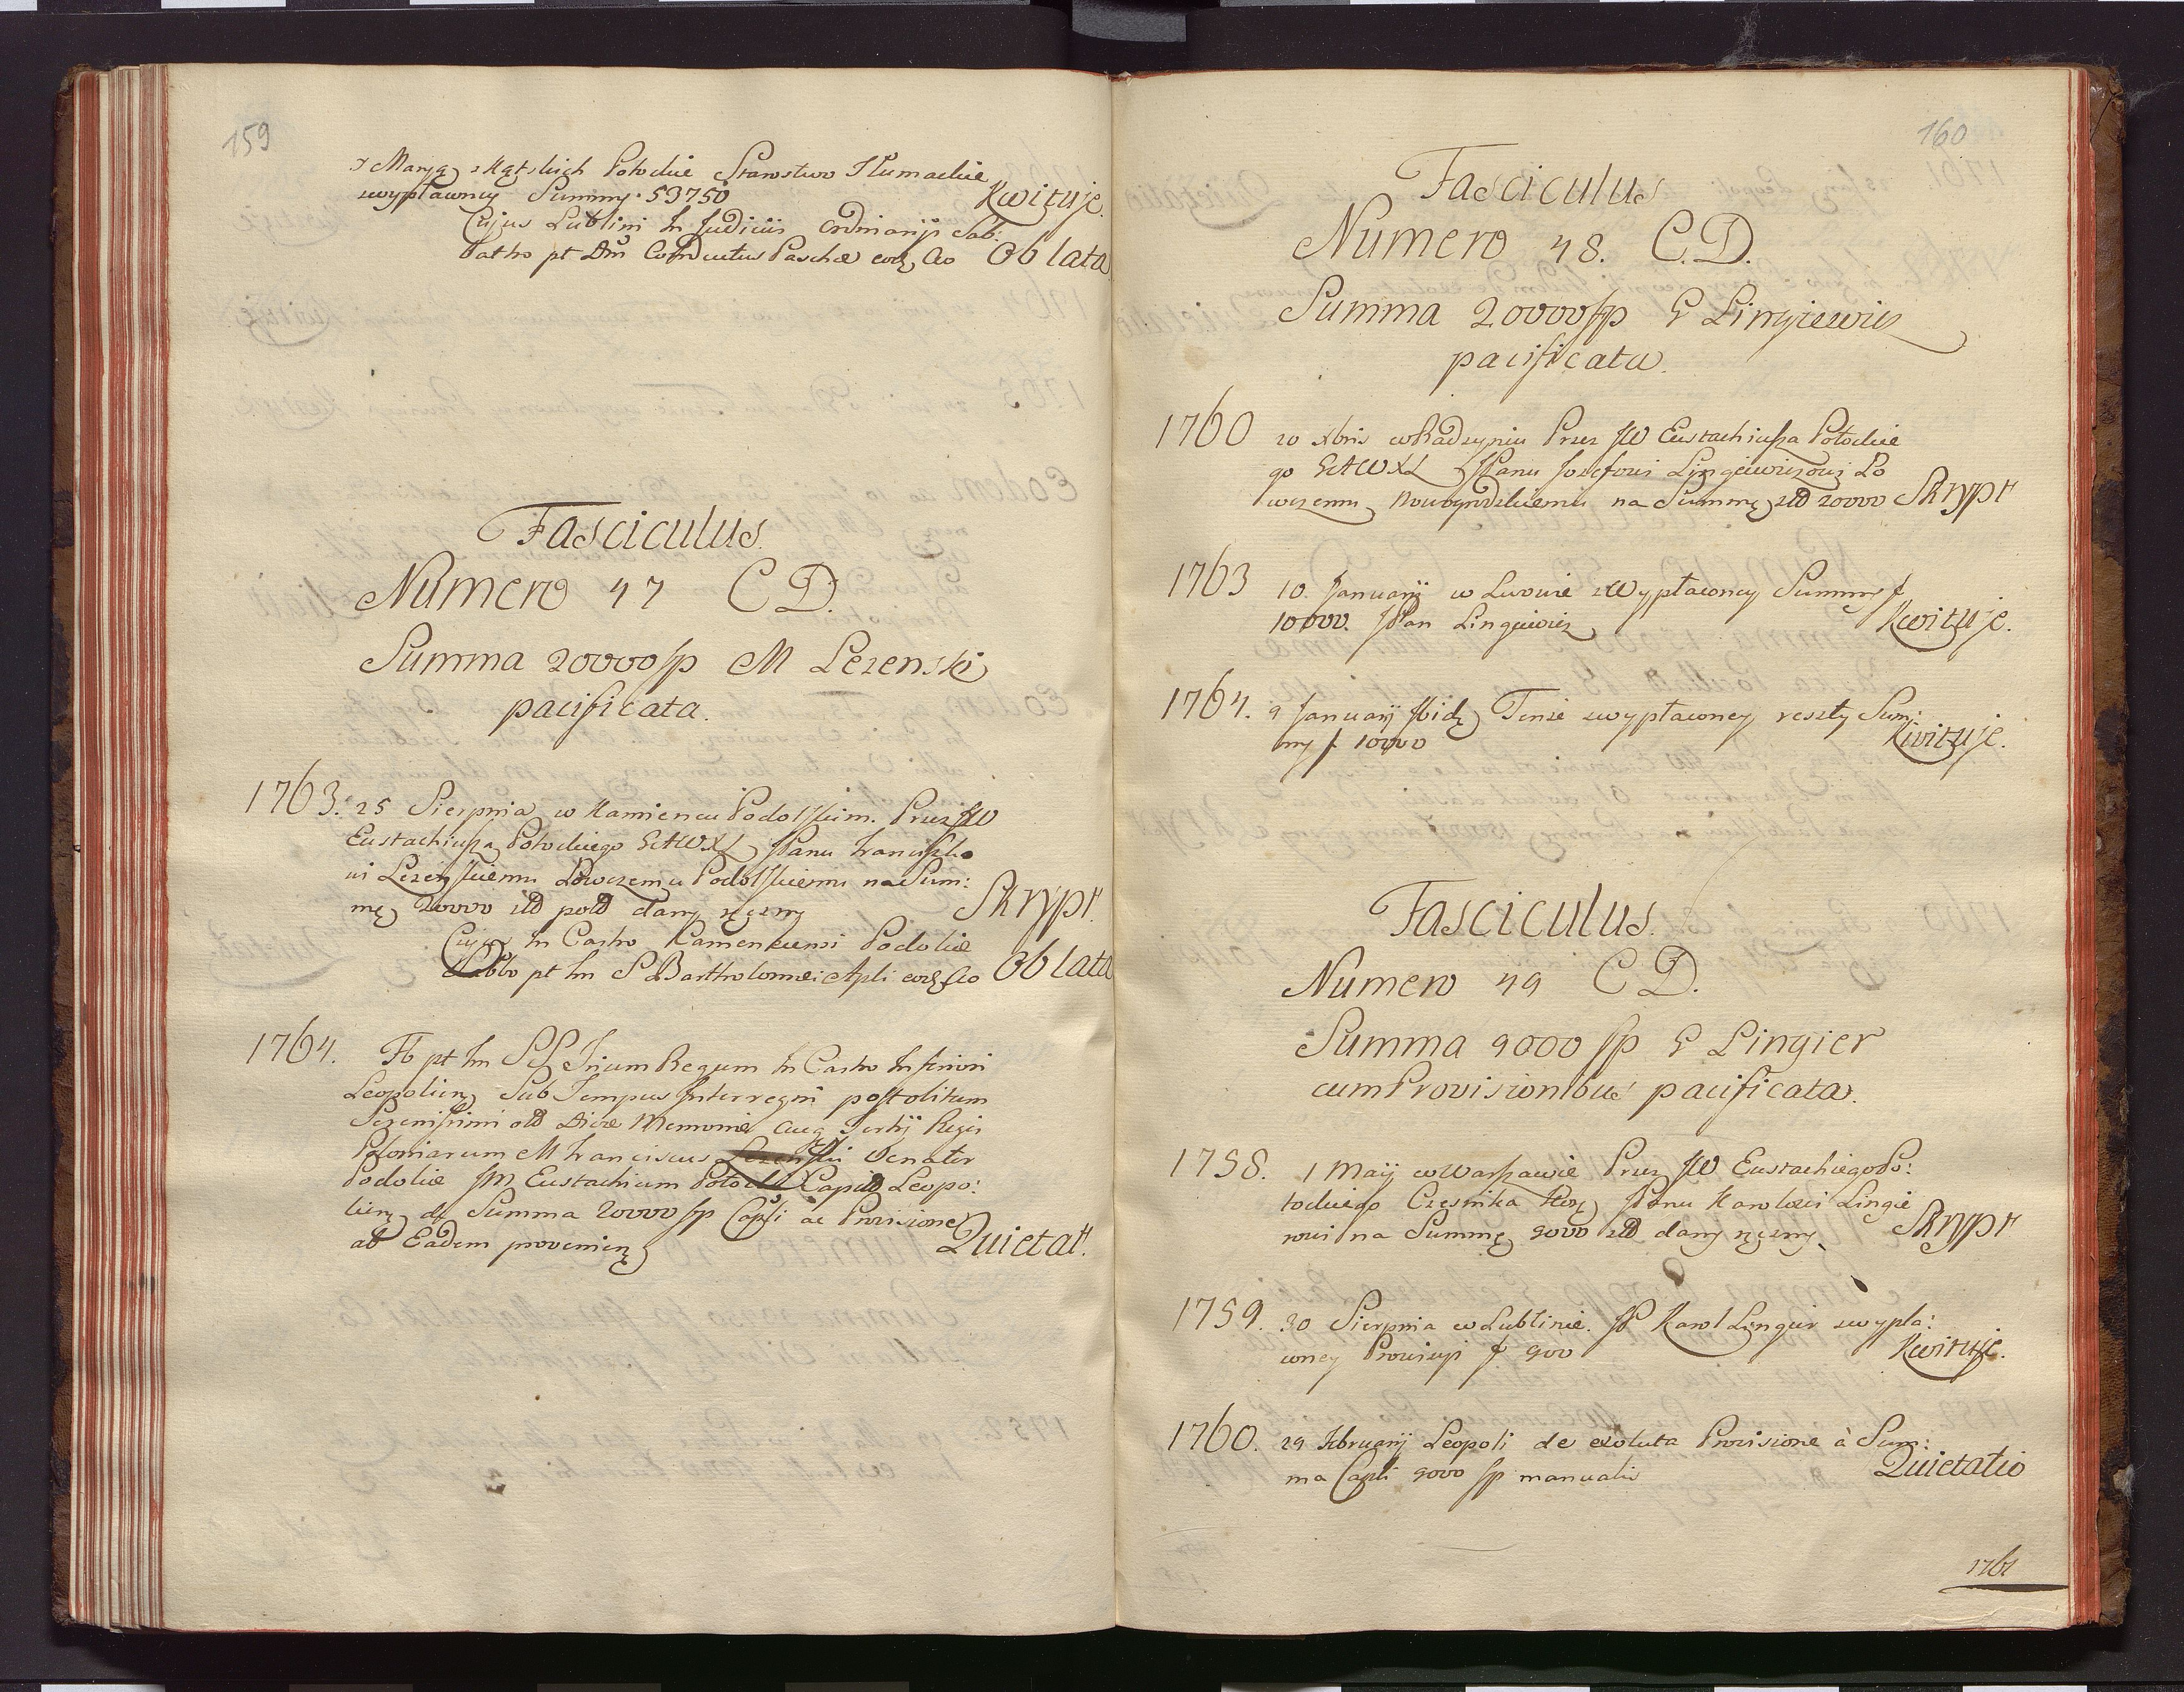 159
y Maryą z Kątskich Potockie Starostwo Tłumackie
z wypłaconey Summy 53750 Kwituje.
Cujus Lublini in Judiciis Ordinarijs Sab:
batho pt Dm Conductus Paschæ eod Ao Oblata
Fasciculus
Numero 47 C D.
Summa 20000 fp M Lezenski
pacificata.
1763. 25 Sierpnia w Kamiencu Podolskim. Przez JW
Eustachiusza Potockiego GAWXL JPanu Franciszko
wi Lezenskiemu Łowczemu Podolskiemu na Sum:
mę 20000 złł poll dany ręczny Skrypt.
Cujus in Castro Camenecensi Podoliæ
Sabbo pt fm S Bartholomæi Apli eod Ao Oblata
1764. Fb pt fm SS Trium Regum in Castro Inferiori
Leopolien Sub Tempus Interregni post olitum
Serenissimi olim Divæ Memoriæ Aug Tertij Regis
Poloniarum M Franciscus Lezenski Venator
Podoliæ JM Eustachium Potocki Capit Leopo:
lien de Summa 20000 fp Capli ac Provisione
ab Eadem provenien Quietat.
160
Fasciculus
Numero 48. C.D.
Summa 20000 fp G Lingiewicz
pacificata.
1760 20 Xbris w Radzyniu Przez JW Eustachiusza Potockie
go GAWXL JPanu Jozefowi Lingiewiczowi Ło
wczemu Nowogrodzkiemu na Summę złł 20000 Skrypt
1763 10. Januarij w Lwowie z Wypłaconey Summy f
10000. JPan Lingiewicz Kwituje.
1764. 9 Januarij Ibid Tenże z wypłaconey reszty Sum:
my f 10000 Kwituje.
Fasciculus.
Numero 49 C D.
Summa 9000 fp G Lingier
cum Provisionibus pacificata.
1758. 1 Maij w Warszawie Przez JW Eustachiego Po:
tockiego Cześnika Kor JPanu Karolowi Lingie
rowi na Summę 9000 złł dany ręczny Skrypt
1759. 30 Sierpnia w Lublinie. JP Karol Lingier z wypła:
coney Prowizyi f 900 Kwituje.
1760. 29 Februarij Leopoli de exoluta Provisione à Sum:
ma Capli 9000 fp manualis Quietatio
1761